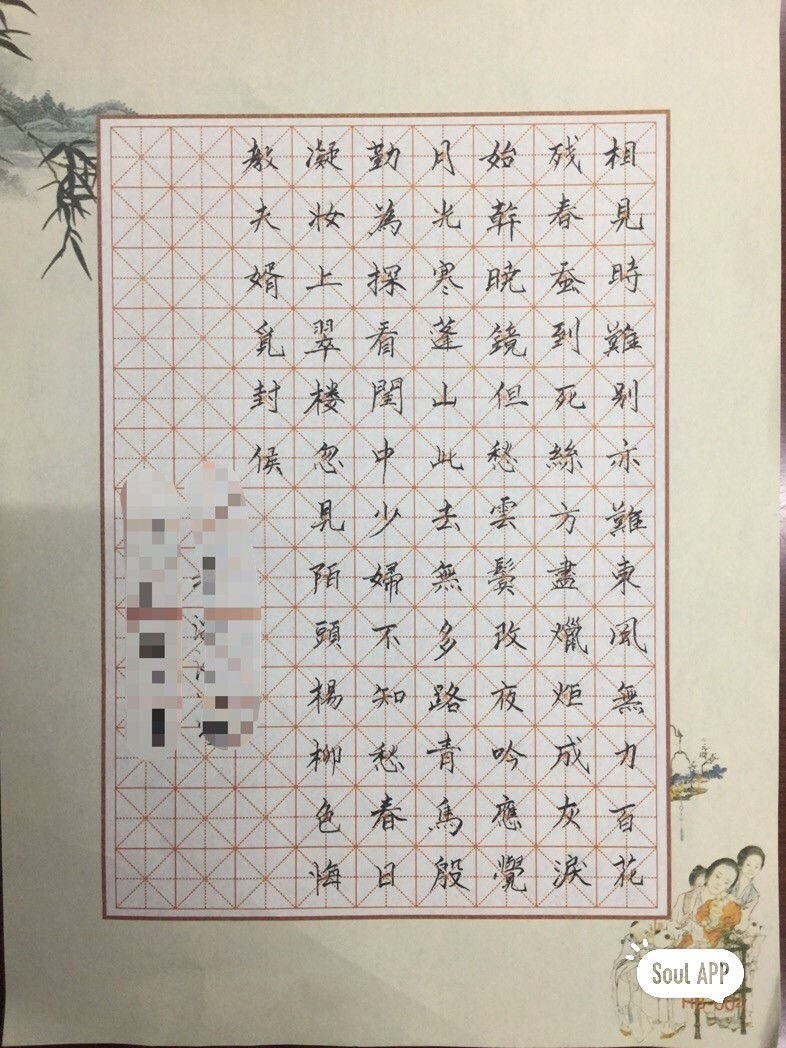 相見時難别亦難東風無力百花
残春蚕到死絲方盡爉炬成灰淚
始幹曉鏡但愁雲鬓改夜吟應覺
月光寒蓬山此去無多路青馬殷
勤為探看閨中少婦不知愁春日
凝妆上翠楼忽見陌頭楊柳色悔
教夫婿覓封侯
Soul APP